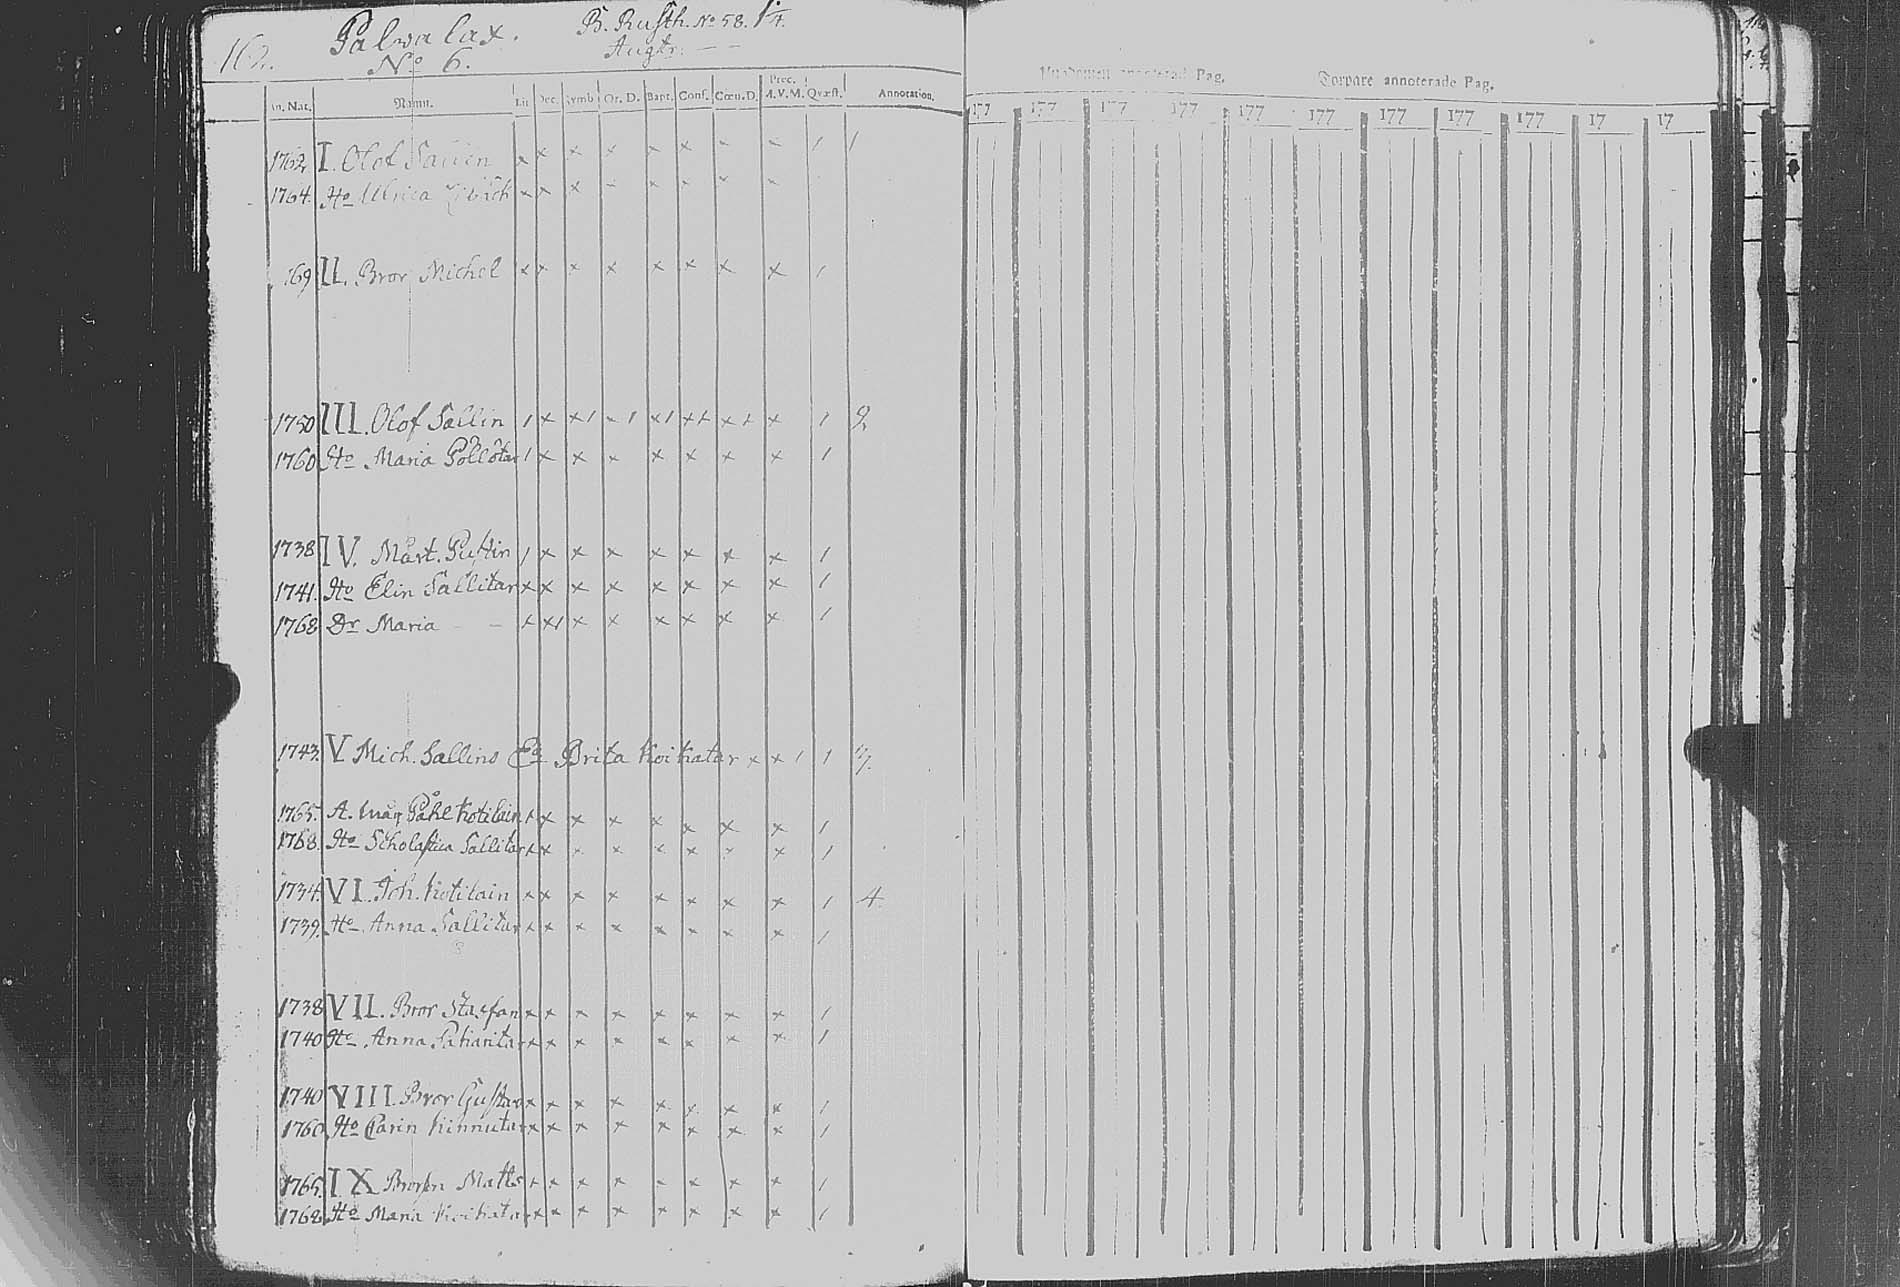 162.
Palwalax. B. Rusth. No 58. 1/4.
No 6. Augtr. — —
An. Nat. Namn. Lit Dec. Symb. Or. D. Bapt. Conf. Cœn. D. Prec. A.V.M. Qvæst. Annotation.
1762 I. Olof Sallin x x x x x x x x / /
1764. Ho Ulrica x x x x x x x x
169 II. Bror Michel x x x x x x x x /
1750 III. Olof Sallin / x x/ x/ x/ xx xx x / 2
1760 Ho Maria Pöllötar / x x x x x x x /
1738 IV. Mårt. Pustin / x x x x x x x /
1741. Ho Elin Sallitar x x x x x x x x /
1768 Dr Maria — — x x/ x x x x x x /
1743. V Mich. Sallins Ea Brita Koikatar x x / /
1765. A. måg Påhl Kotilain x x x x x x x x /
1768. Ho Scholastica Sallitar x x x x x x x x /
1734. VI. Joh. Kotilain x x x x x x x x / 4.
1739. Ho Anna Sallitar x x x x x x x x /
1738 VII. Bror Staffan x x x x x x x x /
1740 Ho Anna x x x x x x x x /
1740 VIII. Bror Gustav x x x x x x x x /
1760 Ho Carin Kinnutar x x x x x x x x /
1765. IX Brorson Matts x x x x x x x x /
1762 Ho Maria Koikatar x x x x x x x x /
annoterad Pag. Torpare annoterade Pag.
177 177 177 177 177 177 177 177 177 17 17